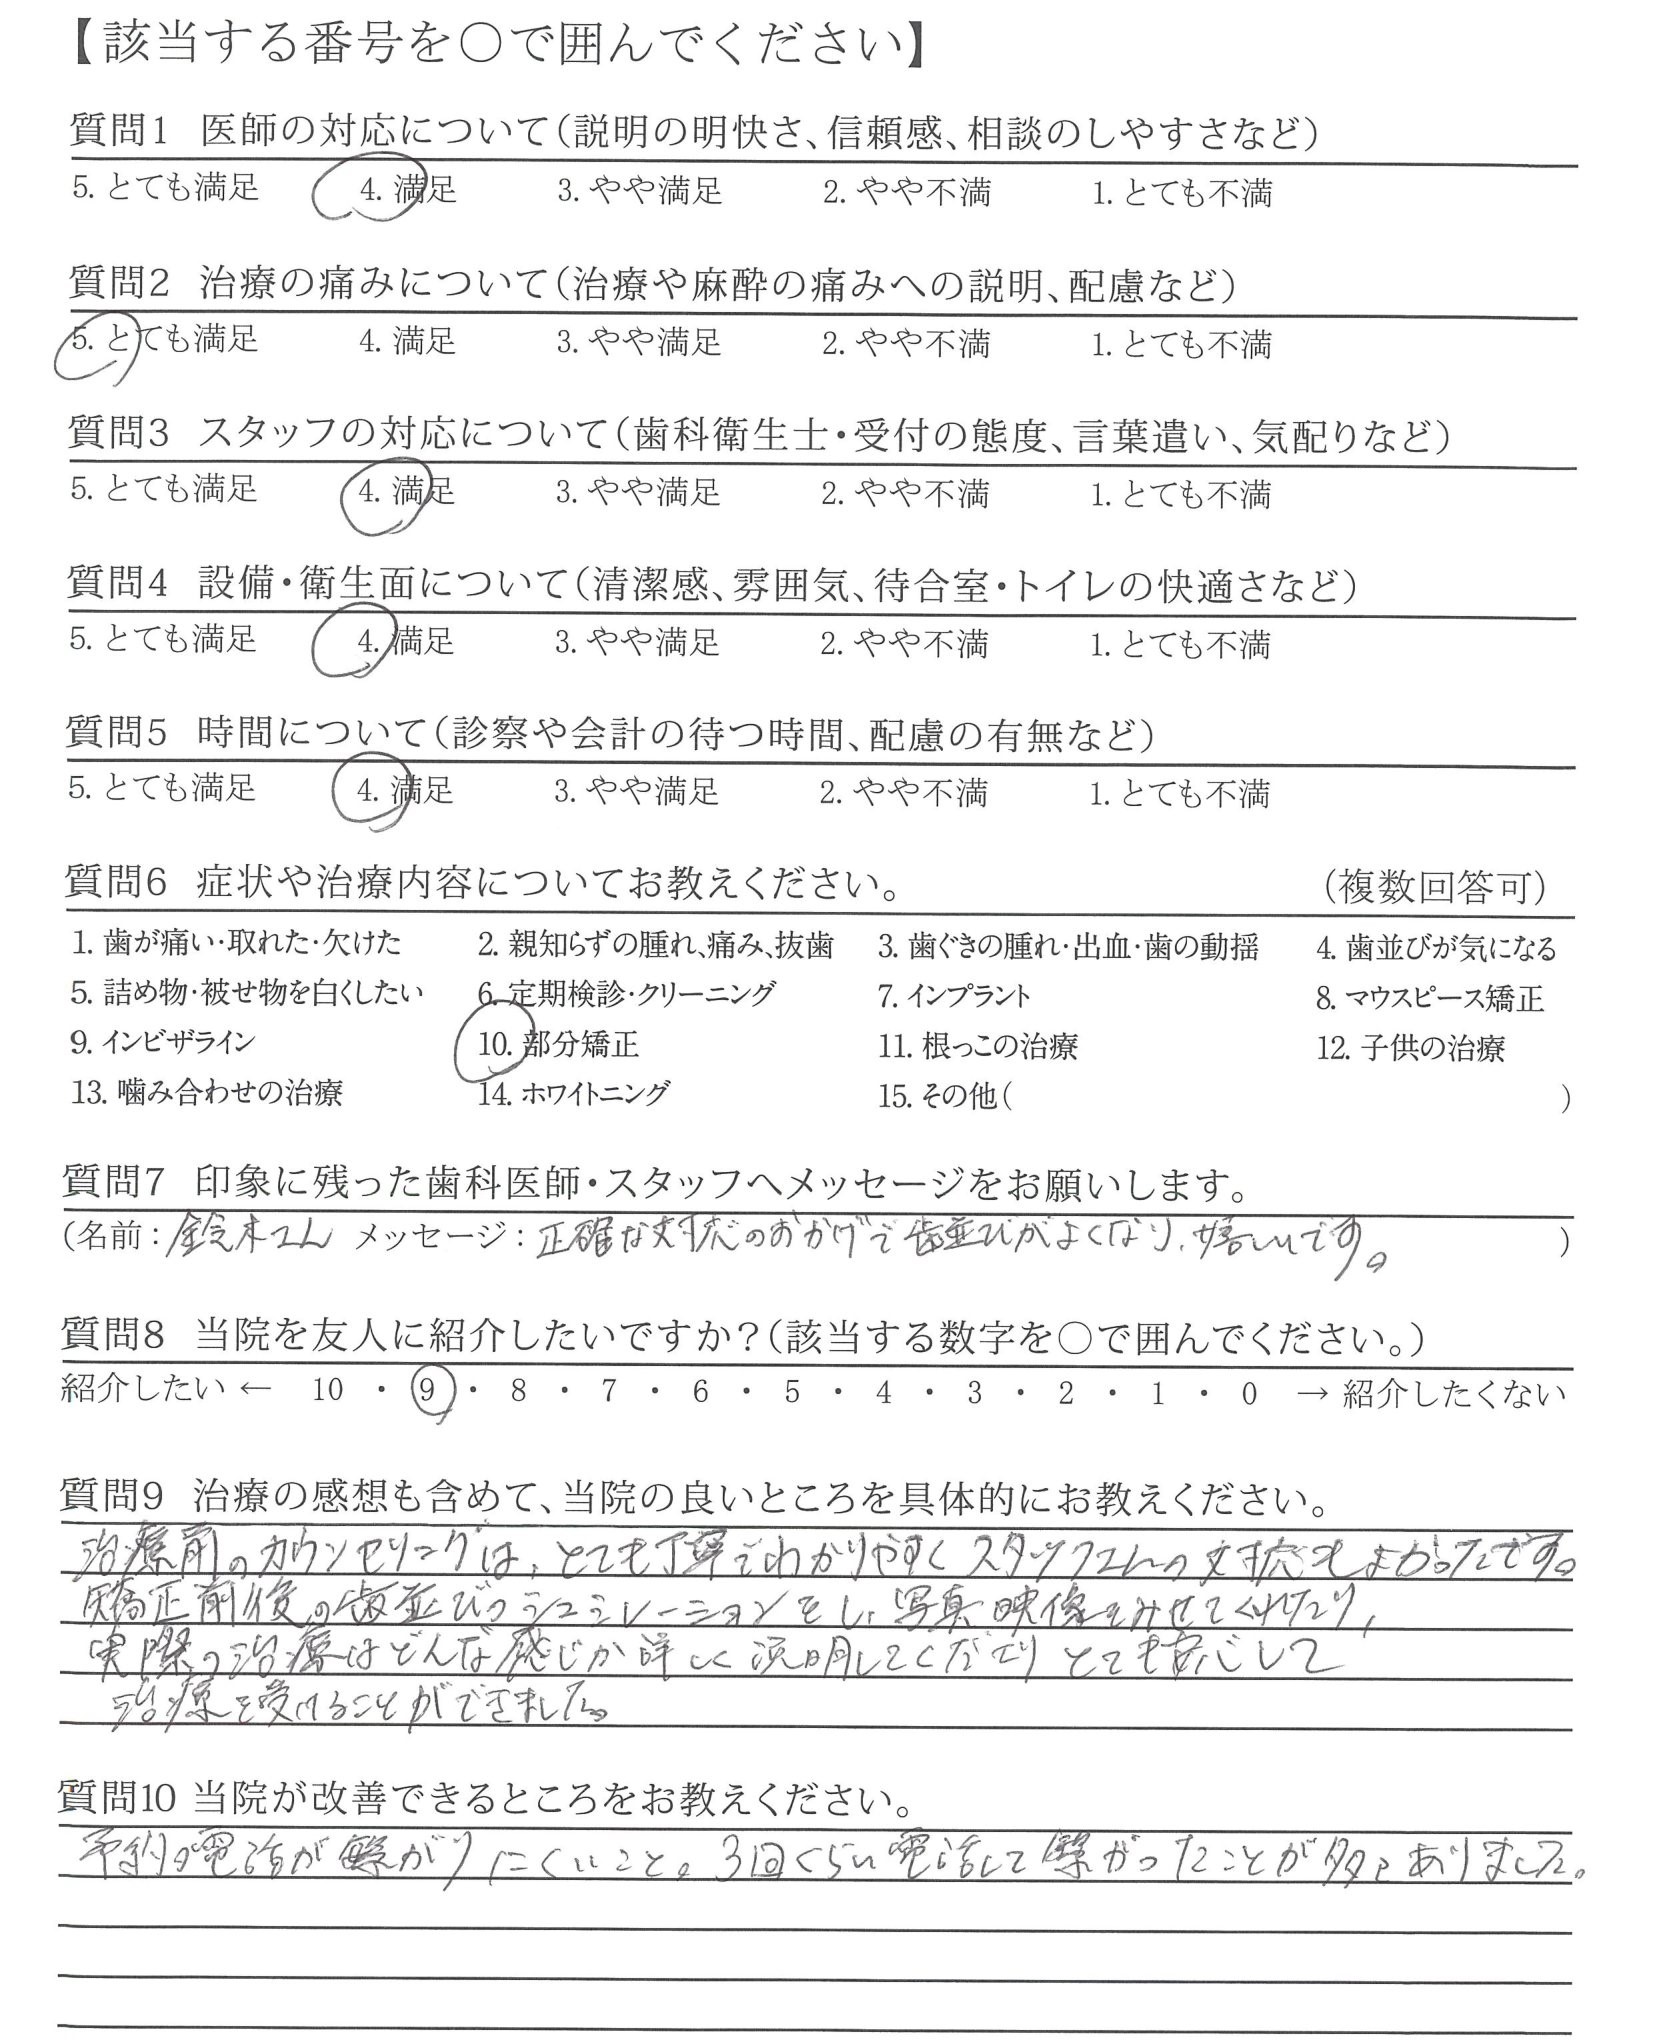 【該当する番号を○で囲んでください】
質問1 医師の対応について(説明の明快さ、信頼感、相談のしやすさなど)
5. とても満足 4. 満足 3. やや満足 2. やや不満 1. とても不満
質問2 治療の痛みについて(治療や麻酔の痛みへの説明、配慮など)
5. とても満足 4. 満足 3. やや満足 2. やや不満 1. とても不満
質問3 スタッフの対応について(歯科衛生士・受付の態度、言葉遣い、気配りなど)
5. とても満足 4. 満足 3. やや満足 2. やや不満 1. とても不満
質問4 設備・衛生面について(清潔感、雰囲気、待合室・トイレの快適さなど)
5. とても満足 4. 満足 3. やや満足 2. やや不満 1. とても不満
質問5 時間について(診察や会計の待つ時間、配慮の有無など)
5. とても満足 4. 満足 3. やや満足 2. やや不満 1. とても不満
質問6 症状や治療内容についてお教えください。 (複数回答可)
1. 歯が痛い・取れた・欠けた 2. 親知らずの腫れ、痛み、抜歯 3. 歯ぐきの腫れ・出血・歯の動揺 4. 歯並びが気になる
5. 詰め物・被せ物を白くしたい 6. 定期検診・クリーニング 7. インプラント 8. マウスピース矯正
9. インビザライン 10. 部分矯正 11. 根っこの治療 12. 子供の治療
13. 噛み合わせの治療 14. ホワイトニング 15. その他( )
質問7 印象に残った歯科医師・スタッフへメッセージをお願いします。
(名前:鈴木さん メッセージ:正確な対応のおかげで歯並びがよくなり、嬉しいです。 )
質問8 当院を友人に紹介したいですか?(該当する数字を○で囲んでください。)
紹介したい ← 10 ・ 9 ・ 8 ・ 7 ・ 6 ・ 5 ・ 4 ・ 3 ・ 2 ・ 1 ・ 0 → 紹介したくない
質問9 治療の感想も含めて、当院の良いところを具体的にお教えください。
治療前のカウンセリングは、とても丁寧でわかりやすくスタッフさんの対応もよかったです。
矯正前後の歯並びのシュミレーションをし、写真映像をみせてくれたり、
実際の治療はどんな感じか詳しく説明してくださりとても安心して
治療を受けることができました。
質問10 当院が改善できるところをお教えください。
予約の電話が繋がりにくいこと。3回くらい電話して繋がったことが多々ありました。